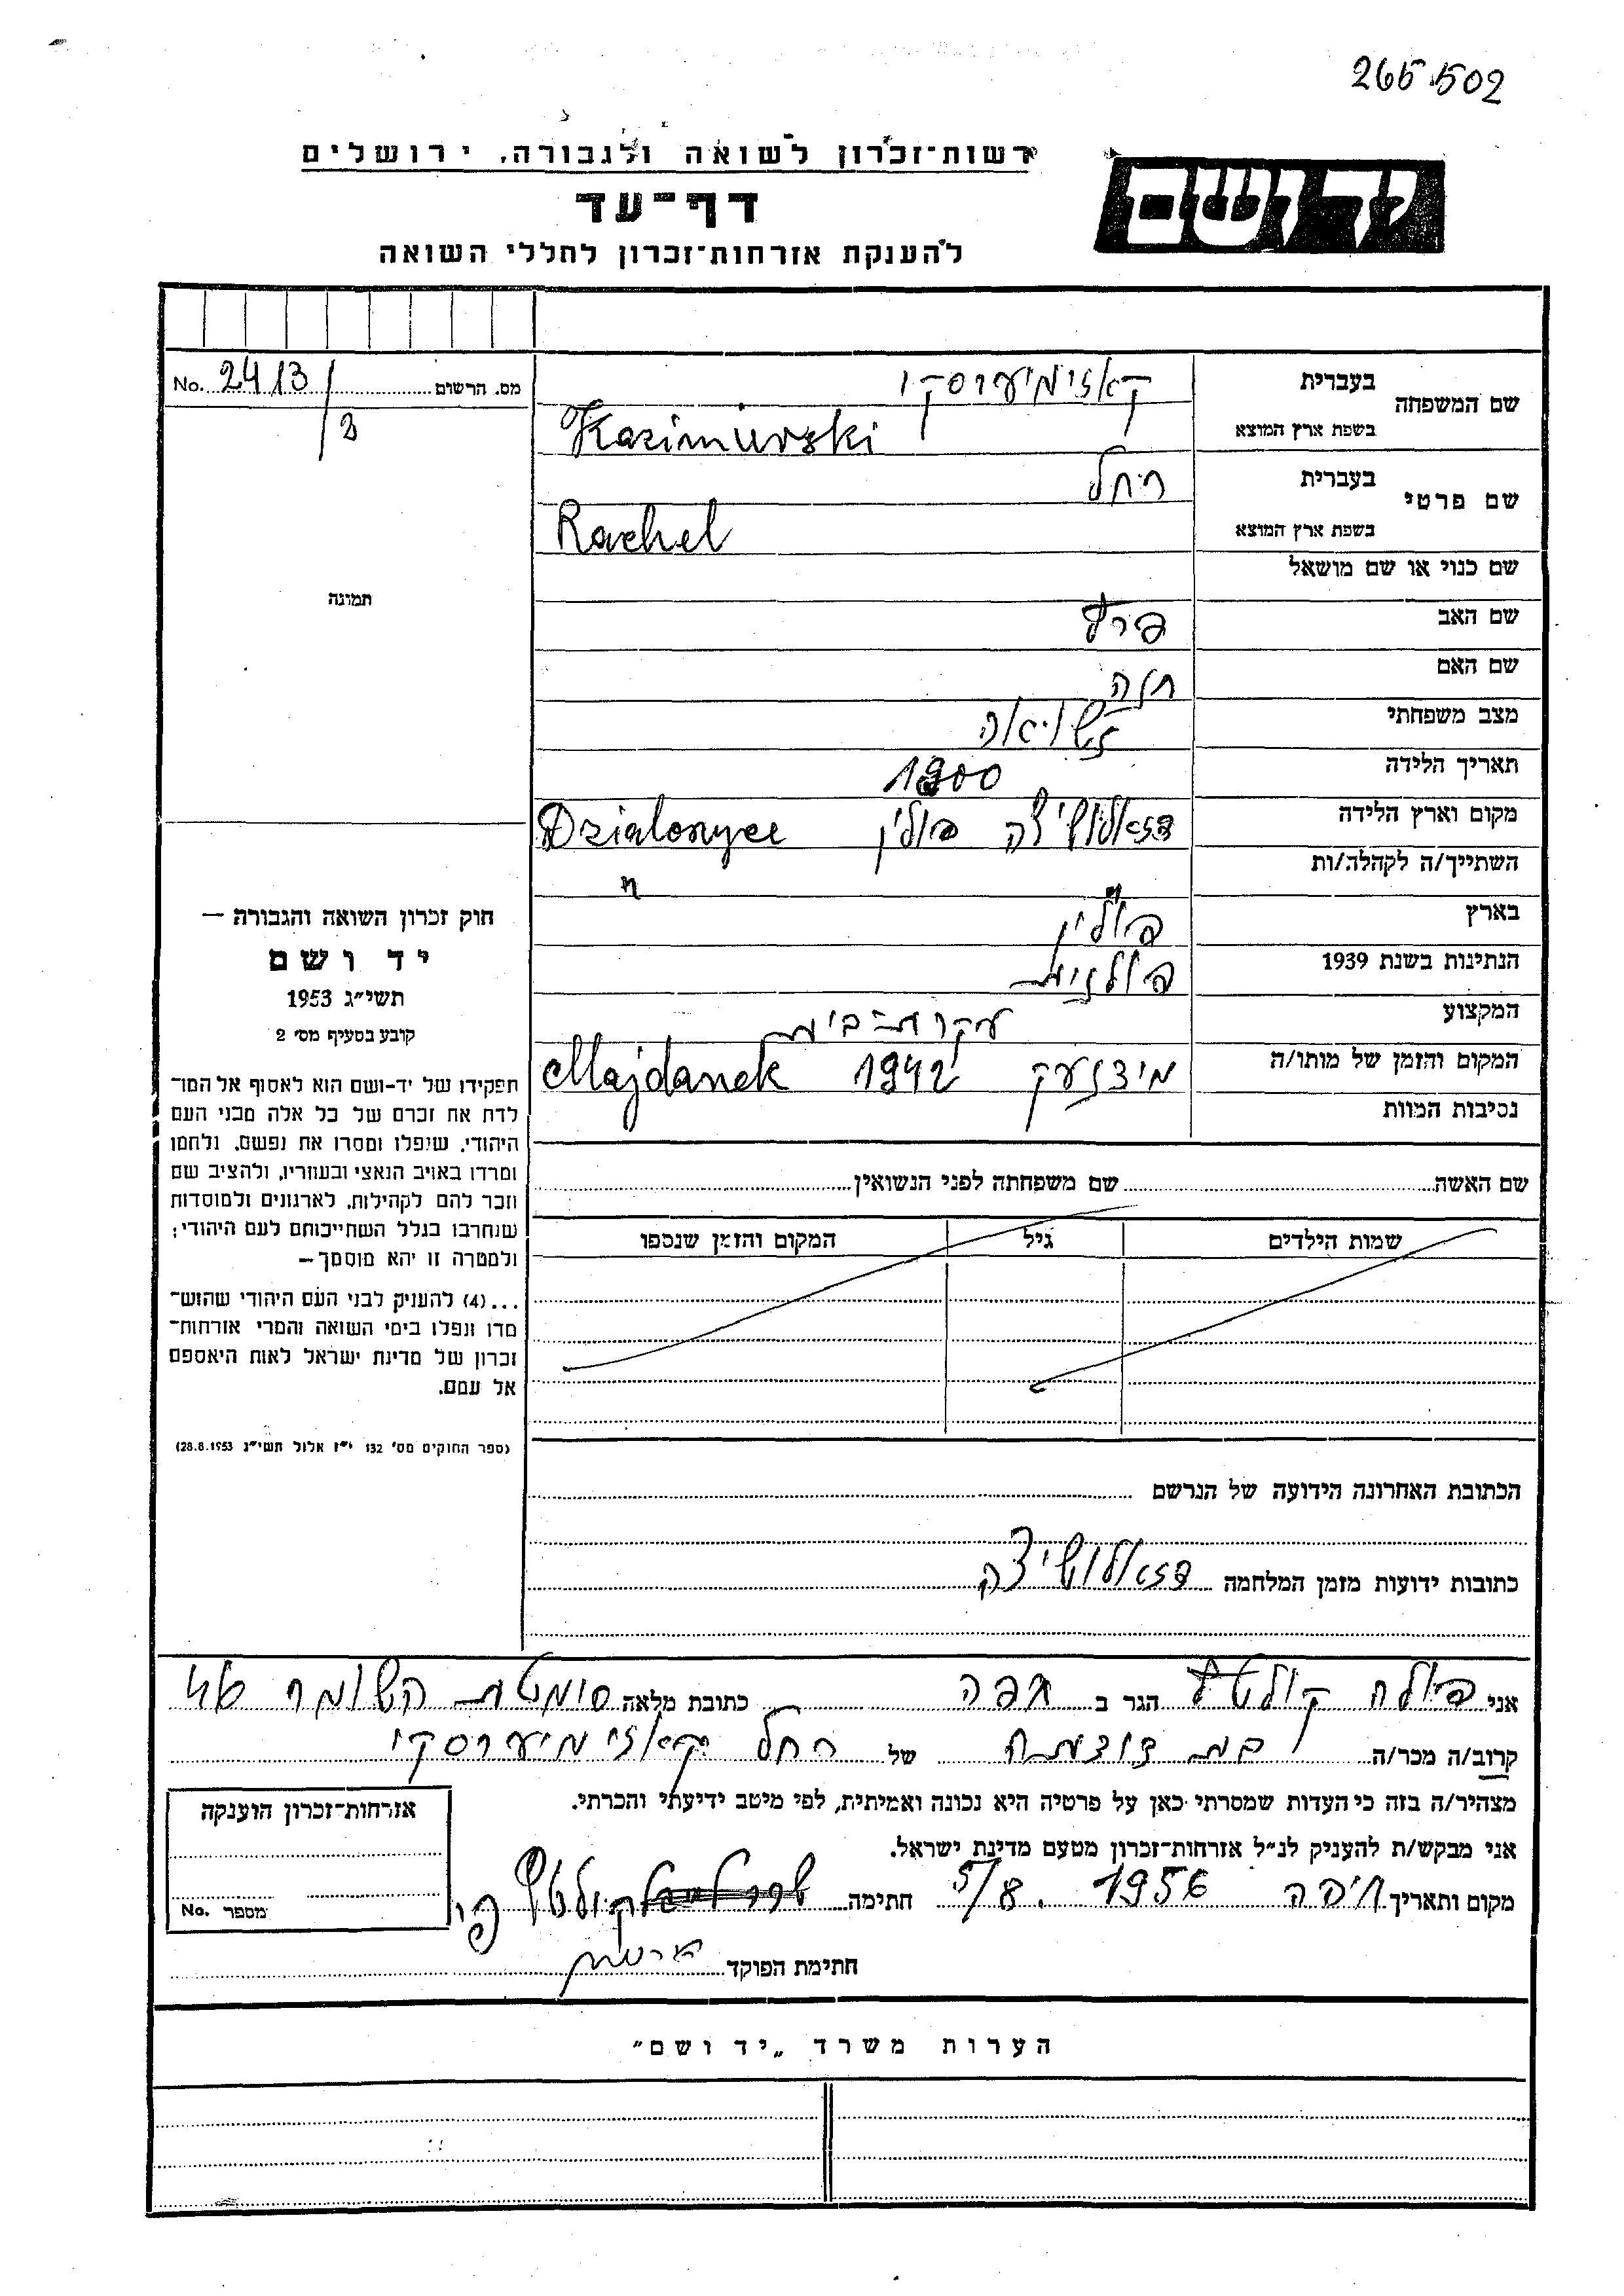 265502
רשות־זכרון לשואה ולגבורה, ירושלים
יד ושם
דף־עד
להענקת אזרחות־זכרון לחללי השואה
מס. הרשום 2413/3 No.
שם המשפחה בעברית קאזימיערסקי
בשפת ארץ המוצא Kazimierski
שם פרטי בעברית רחל
בשפת ארץ המוצא Rachel
שם כנוי או שם מושאל
תמונה
שם האב פרץ
שם האם חנה
מצב משפחתי נשואה
תאריך הלידה 1900
מקום וארץ הלידה דזאלושיצה פולין Dzialoszyce
השתייך/ה לקהלה/ות " "
בארץ פולין
הנתינות בשנת 1939 פולנית
המקצוע עקרת־בית
המקום והזמן של מותו/ה מידנעק 1942 Majdanek
נסיבות המוות
שם האשה שם משפחתה לפני הנשואין
שמות הילדים גיל המקום והזמן שנספו
חוק זכרון השואה והגבורה —
יד ושם
תשי״ג 1953
קובע בסעיף מס׳ 2
תפקידו של יד־ושם הוא לאסוף אל המו־
לדת את זכרם של כל אלה מבני העם
היהודי, שנפלו ומסרו את נפשם, נלחמו
ומרדו באויב הנאצי ובעוזריו, ולהציב שם
וזכר להם לקהילות, לארגונים ולמוסדות
שנחרבו בגלל השתייכותם לעם היהודי;
ולמטרה זו יהא מוסמך—
...(4) להעניק לבני העם היהודי שהוש־
מדו ונפלו בימי השואה והמרי אזרחות־
זכרון של מדינת ישראל לאות היאספם
אל עמם.
(ספר החוקים מס׳ 132 י״ז אלול תשי״ג 28.8.1953)
הכתובת האחרונה הידועה של הנרשם
כתובות ידועות מזמן המלחמה דזאלושיצה
אני פולה הגר ב חיפה כתובת מלאה סימטת השומר
קרוב/ה מכר/ה בת דודתה של רחל קאזימיערסקי
מצהיר/ה בזה כי העדות שמסרתי כאן על פרטיה היא נכונה ואמיתית, לפי מיטב ידיעתי והכרתי.
אני מבקש/ת להעניק לנ״ל אזרחות־זכרון מטעם מדינת ישראל.
מקום ותאריך חיפה 5/8. 1956 חתימה
חתימת הפוקד
אזרחות־זכרון הוענקה
מספר No.
הערות משרד „יד ושם״